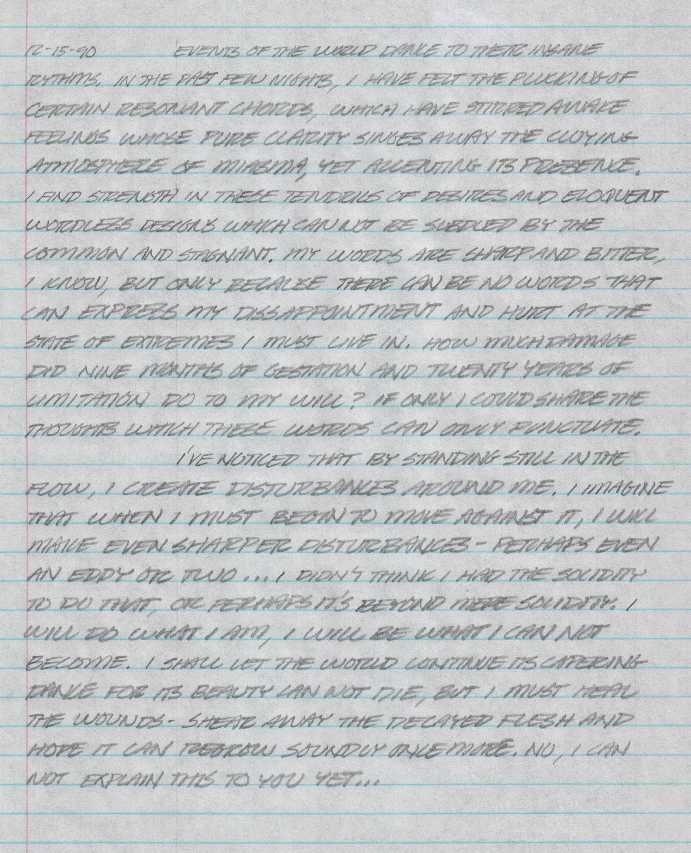 12-15-90 EVENTS OF THE WORLD DANCE TO THEIR INSANE
RYTHMS. IN THE PAST FEW NIGHTS, I HAVE FELT THE PLUCKING OF
CERTAIN RESONANT CHORDS, WHICH HAVE STIRRED AWAKE
FEELINGS WHOSE PURE CLARITY SINGES AWAY THE CLOYING
ATMOSPHERE OF MIASMA, YET ACCENTING ITS PRESENCE.
I FIND STRENGTH IN THESE TENDRILS OF DESIRES AND ELOQUENT
WORDLESS DESIGNS WHICH CAN NOT BE SULLIED BY THE
COMMON AND STAGNANT. MY WORDS ARE SHARP AND BITTER,
I KNOW, BUT ONLY BECAUSE THERE CAN BE NO WORDS THAT
CAN EXPRESS MY DISSAPPOINTMENT AND HURT AT THE
STATE OF EXTREMES I MUST LIVE IN. HOW MUCH DAMAGE
DID NINE MONTHS OF GESTATION AND TWENTY YEARS OF
LIMITATION DO TO MY WILL? IF ONLY I COULD SHARE THE
THOUGHTS WHICH THESE WORDS CAN ONLY PUNCTUATE.
I'VE NOTICED THAT BY STANDING STILL IN THE
FLOW, I CREATE DISTURBANCES AROUND ME. I IMAGINE
THAT WHEN I MUST BEGIN TO MOVE AGAINST IT, I WILL
MAKE EVEN SHARPER DISTURBANCES - PERHAPS EVEN
AN EDDY OR TWO... I DIDN'T THINK I HAD THE SOLIDITY
TO DO THAT, OR PERHAPS IT'S BEYOND MERE SOLIDITY. I
WILL DO WHAT I AM, I WILL BE WHAT I CAN NOT
BECOME. I SHALL LET THE WORLD CONTINUE ITS CAPERING
DANCE FOR ITS BEAUTY CAN NOT DIE, BUT I MUST HEAL
THE WOUNDS - SHEAR AWAY THE DECAYED FLESH AND
HOPE IT CAN REGROW SOUNDLY ONCE MORE. NO, I CAN
NOT EXPLAIN THIS TO YOU YET...